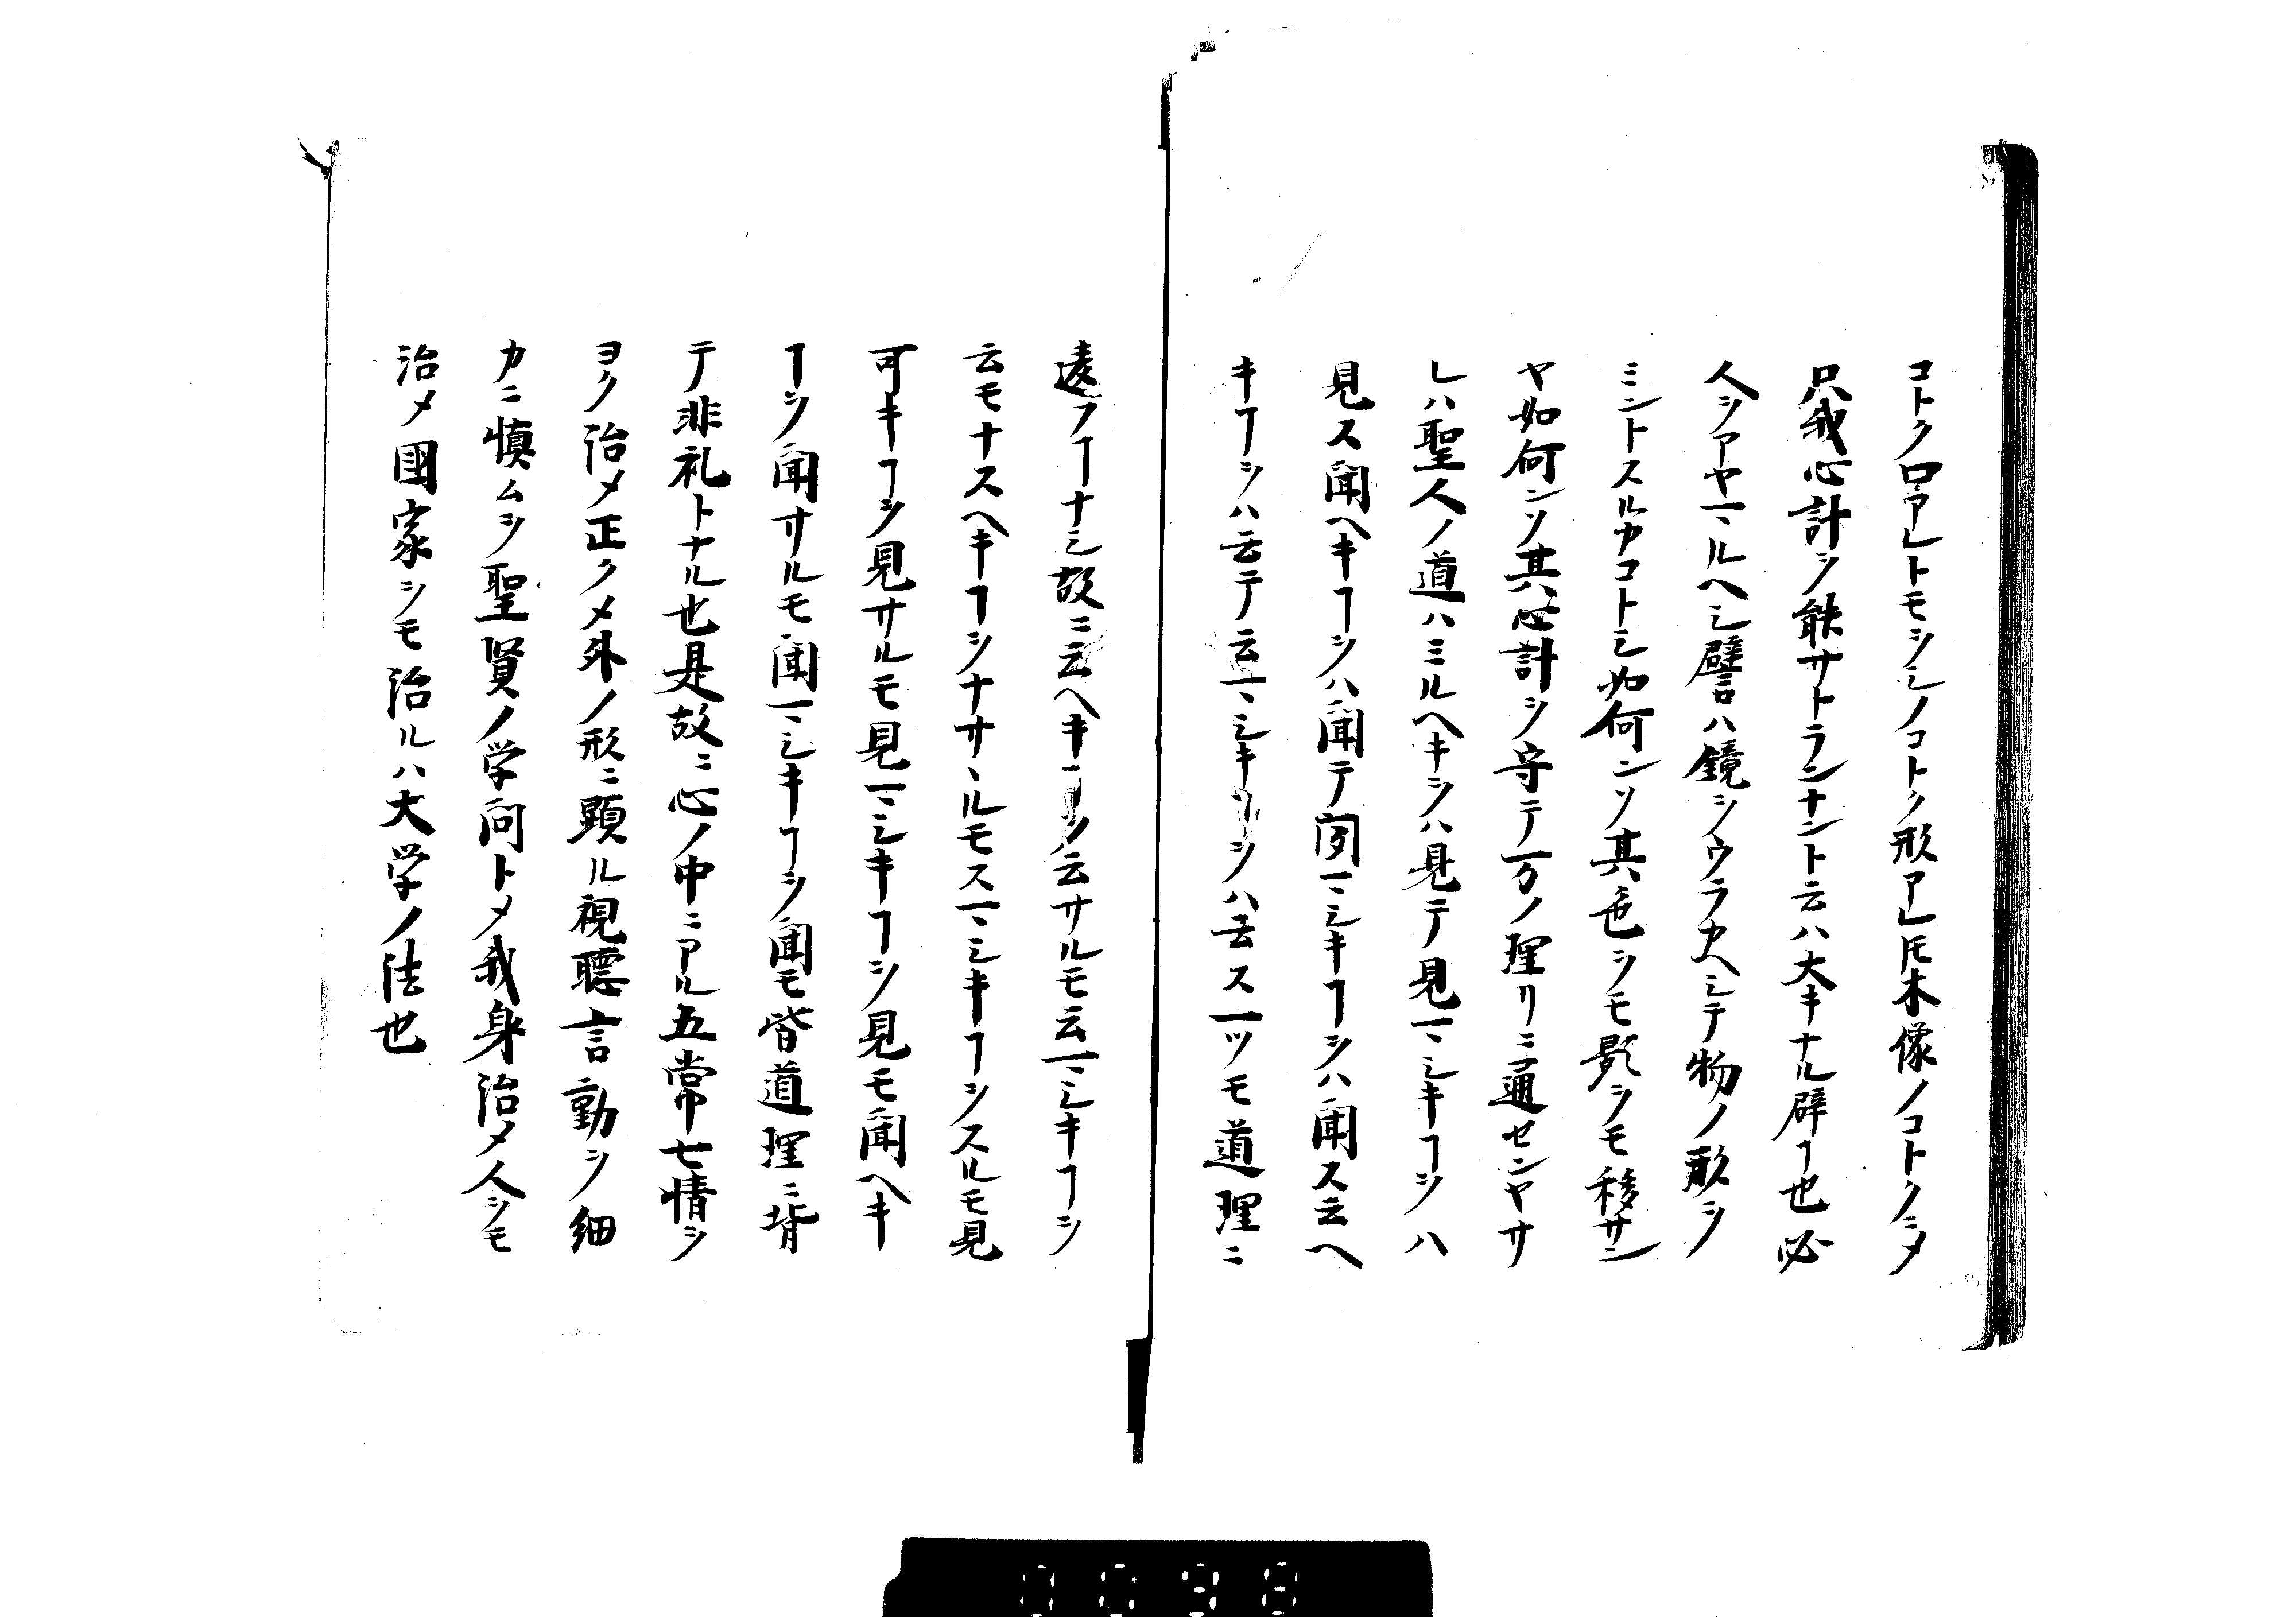 コトク口アレトモシヽノコトク形アレ𪜈木像ノコトクシメ
只我心計ヲ能サトランナント云ハ大キナル僻ヿ也必
人ヲアヤマルヘシ譬ハ鏡ヲウラカヘシテ物ノ形ヲ
ミントスルカコトシ如何ンソ其色ヲモ影ヲモ移サン
ヤ如何ンソ其心計ヲ守テ万ノ理リニ通センヤサ
レハ聖人ノ道ハミルヘキヲハ見テ見マシキヿヲハ
見ス聞ヘキヿヲハ聞テ聞マシキヿヲハ聞ス云ヘ
キヿヲハ云テ云マシキヿヲハ云ス一ツモ道理ニ
違フヿナシ故ニ云ヘキヿヲ云サルモ云マシキヿヲ
云モナスヘキヿヲナサヽルモスマシキヿヲスルモ見
可キヿヲ見サルモ見マシキヿヲ見モ聞ヘキ
ヿヲ聞サルモ聞マシキヿヲ聞モ皆道理ニ背
テ非礼トナル也是故ニ心ノ中ニアル五常七情ヲ
ヨク治メ正クメ外ノ形ニ顕ル視聴言動ヲ細
カニ慎ムヲ聖賢ノ学問トメ我身治メ人ヲモ
治メ國家ヲモ治ルハ大学ノ法也